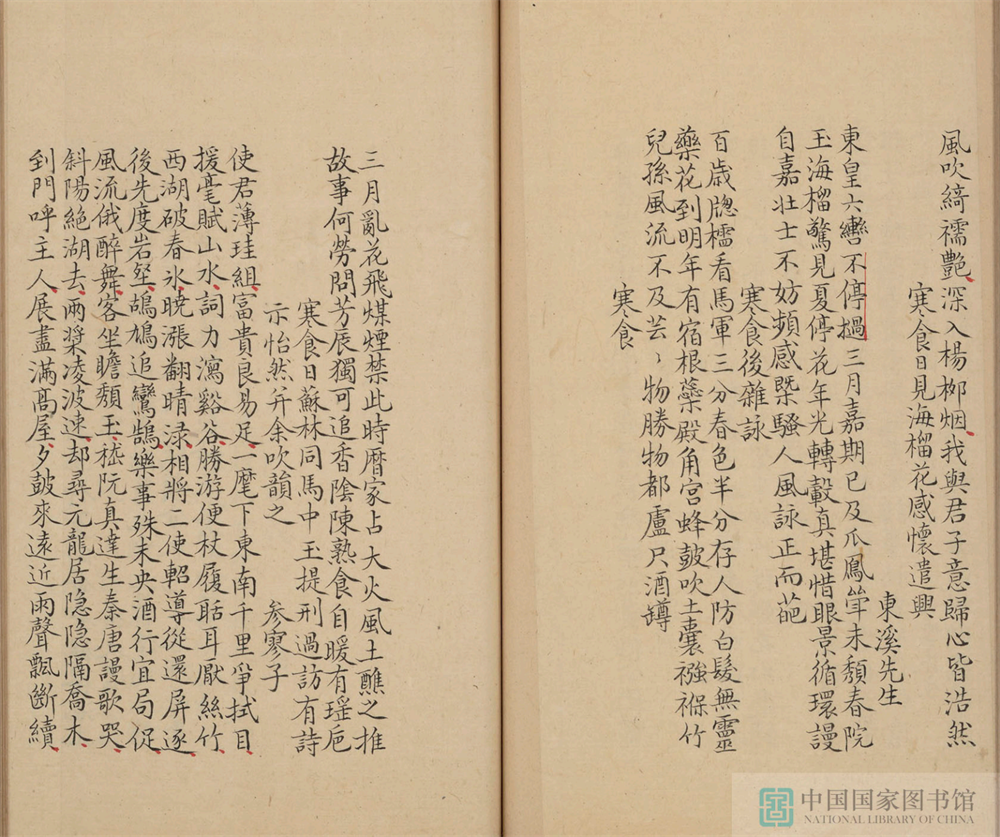 風吹綺襦艷深入楊柳烟我與君子意歸心皆浩然
寒食日見海榴花感懷遣興
東溪先生
東皇六轡不停撾三月嘉期已及瓜鳳筆未頹春院
玉海榴驚見夏停花年光轉轂真堪惜眼景循環謾
自嘉壯士不妨頻感槩騷人風詠正而葩
寒食後雜詠
百歲牕櫺看馬軍三分春色半分存人防白髮無靈
藥花到明年有宿根蘂殿角宮蜂鼓吹土囊襁褓竹
兒孫風流不及芸〻物勝物都盧尺酒罇
寒食
三月亂花飛煤煙禁此時曆家占大火風土醮之推
故事何勞問芳辰獨可追香陰陳熟食自暖有瑶巵
寒食日蘇林同馬中玉提刑過訪有詩
示怡然并余吹韻之
參寥子
使君薄珪組富貴良易足一麾下東南千里爭拭目
援毫賦山水詞力瀉谿谷勝游便杖履聒耳厭絲竹
西湖破春氷曉漲翻晴渌相將二使軺導從還屏逐
後先度岩壑鴣鳩追鸞鵠樂事殊未央酒行宜局促
風流俄醉舞客坐瞻頹玉嵇阮真達生秦唐謾歌哭
斜陽絶湖去兩槳凌波速却尋元龍居隐隐隔喬木
到門呼主人展盡滿髙屋夕鼓來遠近雨聲飄斷續
中国国家图书馆
NATIONAL LIBRARY OF CHINA